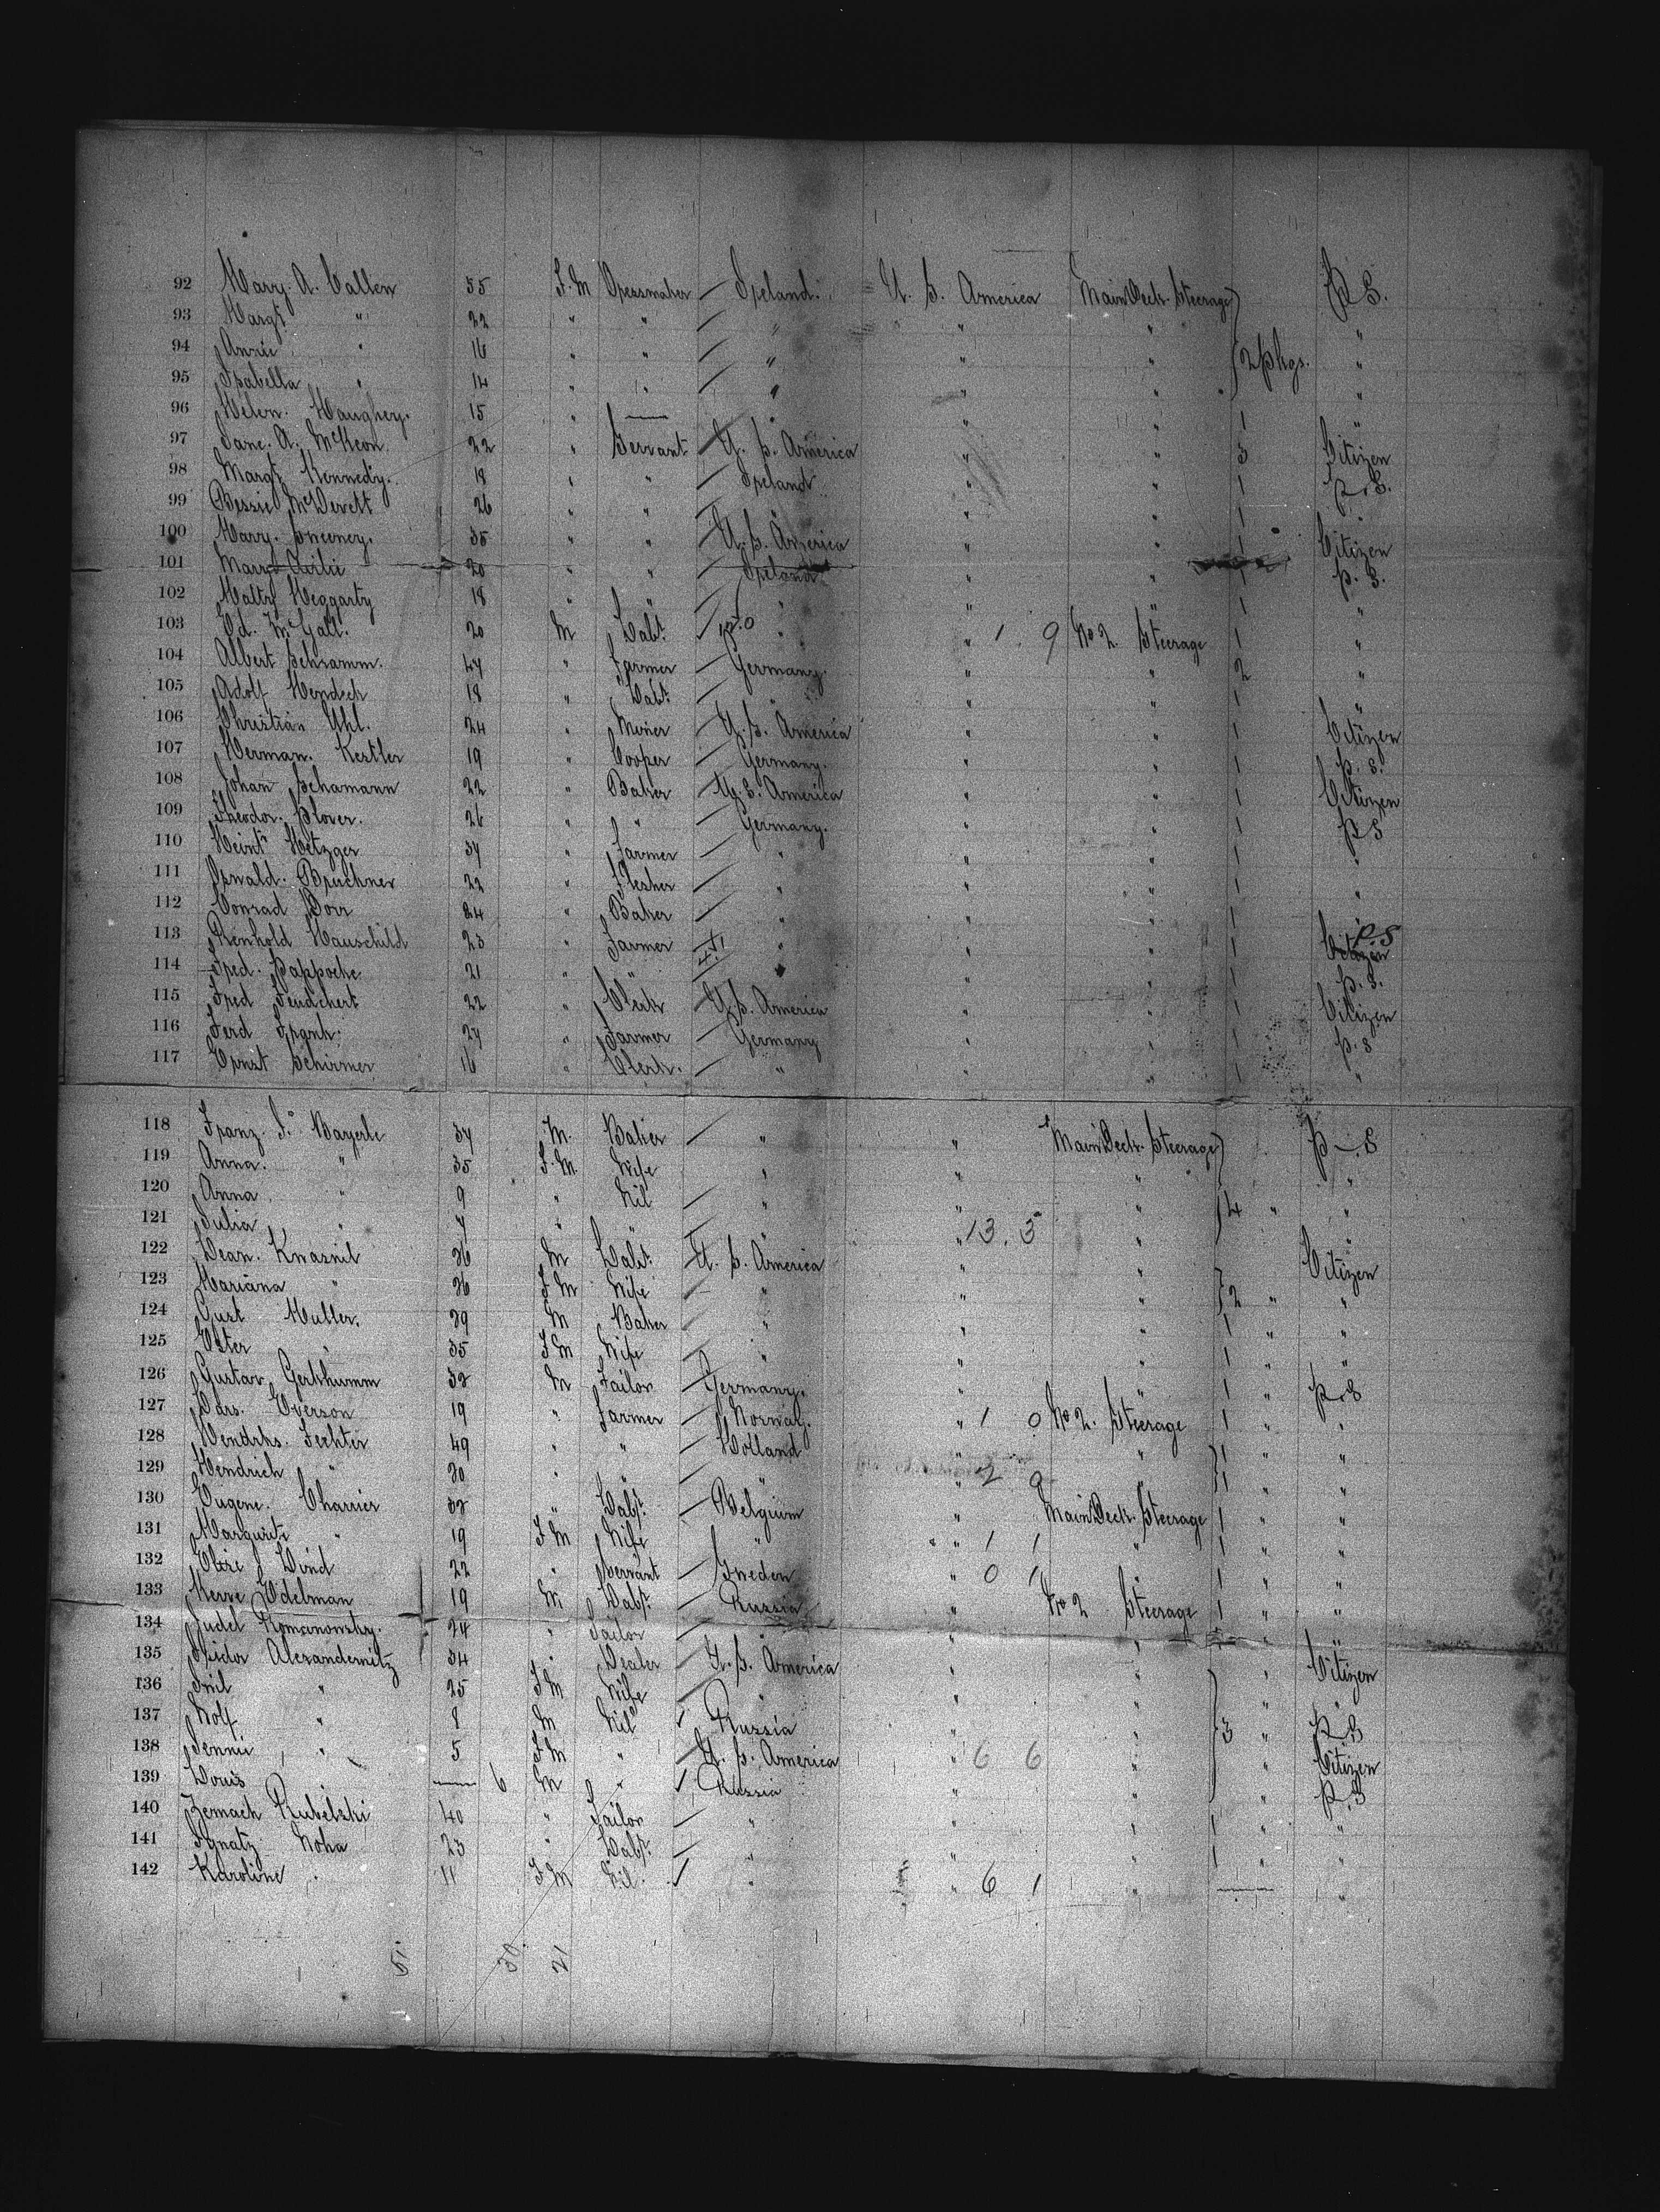 92 Mary. A. Callen 55 F. M Dressmaker — Ireland. = U. S. America Main Deck. Steerage P S.
93 Margt " 22 " " / " " " "
94 Annie " 16 " " / " " " } 2 pkgs. "
95 Isabella " 14 " " / " " " "
96 Helen. Haughey. 15 " — " " 1 "
97 Jane. A. McKeon. 22 " Servant U. S. America " " 3 Citizen
98 Margt Kennedy. 18 " " / Ireland " " 1 P. S.
99 Bessie McDevett 26 " " / " " " 1 "
100 Mary. Sweeney. 35 " " / U. S. America " " 1 Citizen
101 Mary 20 " " / Ireland " " 1 P. S.
102 Heggarty 18 " " / " " " 1 "
103 Ed. McGall. 20 M Labr. / " " 1 9 No 2. Steerage 1 "
104 Albert Schramm. 44 " Farmer — Germany. " " 2 "
105 Adolf 18 " Labr. — " " " 1 "
106 Christian Uhl. 24 " — U. S. America " " 1 Citizen
107 Herman. Kestler 19 " Cooper — Germany. " " 1 P. S.
108 Johan Schamann 22 " Baker — U. S. America " " 1 Citizen
109 Theodor. 26 " " — Germany. " " 1 P S
110 Metzger 34 " Farmer — " " " 1 "
111 Oswald. Bruchner 22 " Flesher / " " " 1 "
112 Conrad Dorr 24 " Baker / " " " 1 "
113 Renhold Hauschild 23 " Farmer " " " 1 Citizen P.S
114 Fred. 21 " " / " " " 1 P. S.
115 Fred 22 " Clerk — U. S. America " " 1 Citizen
116 Ferd Frank. 24 " Farmer — Germany " " 1 P. S
117 Ernst Schirmer 16 " Clerk. — " " " 1 "
118 Franz. Bayerle 34 M. Baker / " " Main Deck. Steerage P — S
119 Anna. " 35 F. M. Wife " " " "
120 Anna " 9 " Nil / " " " } 4 " "
121 Julia " " " / " " 13. 5 " "
122 36 M Labr. — U. S. America " " Citizen
123 Mariana " 36 F M Wife — " " " } 2 " "
124 Gust 39 M Baker / " " " 1 " "
125 " 35 F M Wife / " " " 1 " "
126 Gustav 32 M Tailor — Germany. " " 1 " P. S
127 Lars. Everson 19 " Farmer — Norway. " 1 0 No 2. Steerage 1 " "
128 Fechter 49 " " — Holland " " } 1 " "
129 Hendrich " 20 " " / " " 2 9 " "
130 Eugene. Charrier 32 " Labr. — Belgium " Main Deck. Steerage 1 " "
131 " 19 F M Wife / " " 1 1 " 1 " "
132 22 " Servant — Sweden " 0 1 " 1 " "
133 Edelman 19 M Labr. — Russia " No 2 Steerage 1 " "
134 Judel Romanowsky. 24 " Tailor — " " " 1 " "
135 Isidor 34 " Dealer — U. S. America " " " Citizen
136 " 25 F M Wife / " " " " "
137 Wolf " 8 M Nil / Russia " " } 3 " P S
138 Jennie " 5 F M " / U. S. America " 6 6 " Citizen
139 Louis — 6 M " / Russia " " " P. S
140 Zemach 40 " Tailor — " " " 1 " "
141 Ignatz Noha 23 " Labr. — " " " 1 " "
142 Karoline " 11 F M Nil. / " " 6 1 " — "
51 30 21